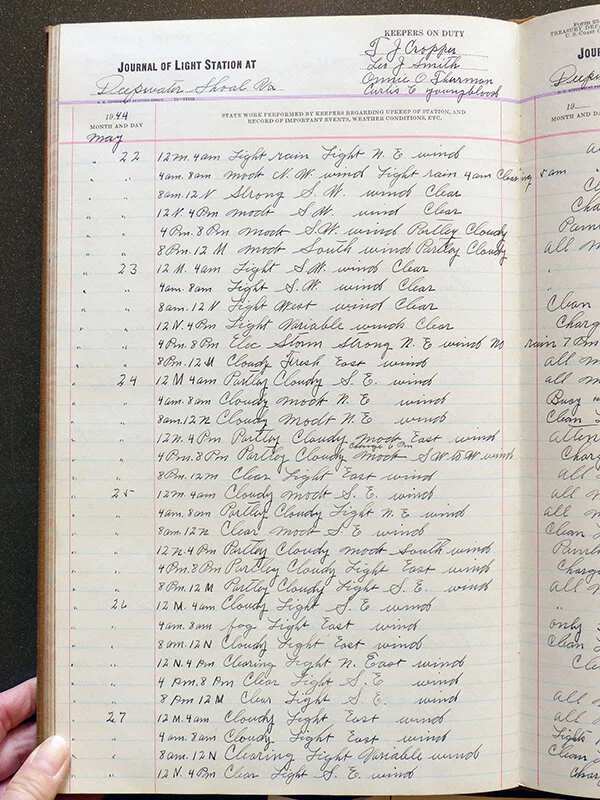 KEEPERS ON DUTY
T J Cropper
JOURNAL OF LIGHT STATION AT
Leo J Smith
Deepwater Shoal Va
Onnie O Thurman
Curtis E Youngblood
1944
MONTH AND DAY
STATE WORK PERFORMED BY KEEPERS REGARDING UPKEEP OF STATION, AND
RECORD OF IMPORTANT EVENTS, WEATHER CONDITIONS, ETC.
May
22 12 m. 4am Light rain Light N. E wind
" " 4am. 8am modt N. W. wind Light rain 4am Clearing 5am
" " 8am. 12 N Strong S. W. wind Clear
" " 12 N. 4 Pm modt S.W. wind Clear
" " 4 Pm. 8 Pm modt S.W. wind Partley Cloudy
" " 8 Pm. 12 M modt South wind Partley Cloudy
" 23 12 M. 4am Light S.W. wind Clear
" " 4am. 8am Light S. W. wind Clear
" " 8am. 12N Light West wind Clear
" " 12 N. 4 Pm Light Variable winds Clear
" " 4Pm. 8 Pm Elec Storm Strong N. E wind No rain 7 Pm
" " 8 Pm. 12 M Cloudy Fresh East wind
" 24 12 M 4am Partley Cloudy S. E. wind
" " 4am. 8am Cloudy modt N. E wind
" " 8am. 12N Cloudy modt N. E wind
" " 12 N. 4 Pm Partley Cloudy modt East wind
" " 4 Pm. 8 Pm Partley Cloudy change 6 Pm modt S.W. to W wind
" " 8 Pm. 12 m Clear Light East wind
" 25 12 m. 4am Cloudy modt S. E. wind
" " 4am. 8am Partley Cloudy Light N. E wind
" " 8am. 12 N Clear modt S. E. wind
" " 12 N. 4 Pm Partley Cloudy modt South wind
" " 4 Pm. 8 Pm Partley Cloudy Light East wind
" " 8 Pm. 12 M Partley Cloudy Light S. E. wind
" 26 12 M. 4am Cloudy Light S. E wind
" " 4am. 8am fog Light East wind
" " 8am. 12N Cloudy Light East wind
" " 12 N. 4 Pm Clearing Light N. East wind
" " 4 Pm. 8 Pm Clear Light S. E wind
" " 8 Pm 12 M Clear Light S. E. wind
" 27 12 M. 4am Cloudy Light East wind
" " 4am. 8am Cloudy Light East wind
" " 8am. 12 N Clearing Light Variable wind
" " 12 N. 4 Pm Clear Light S. E wind
TREASURY DEP
U. S. COAST
JOUR
Deepw
19
MONTH AND DAY
Clean
Charg
all m
all m
Busy
Clean
atten
Charg
all m
all m
all m
Clean
Charge
all m
only
Clean
all m
all m
Lights
Clean